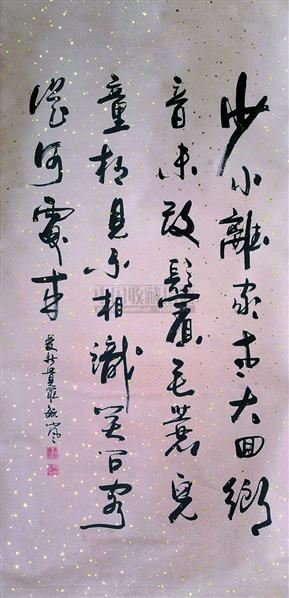 少小離家老大回鄉
音未改鬢毛衰兒
童相見不相識笑問客
從何處來
愛新覺羅毓嵐
中国收藏